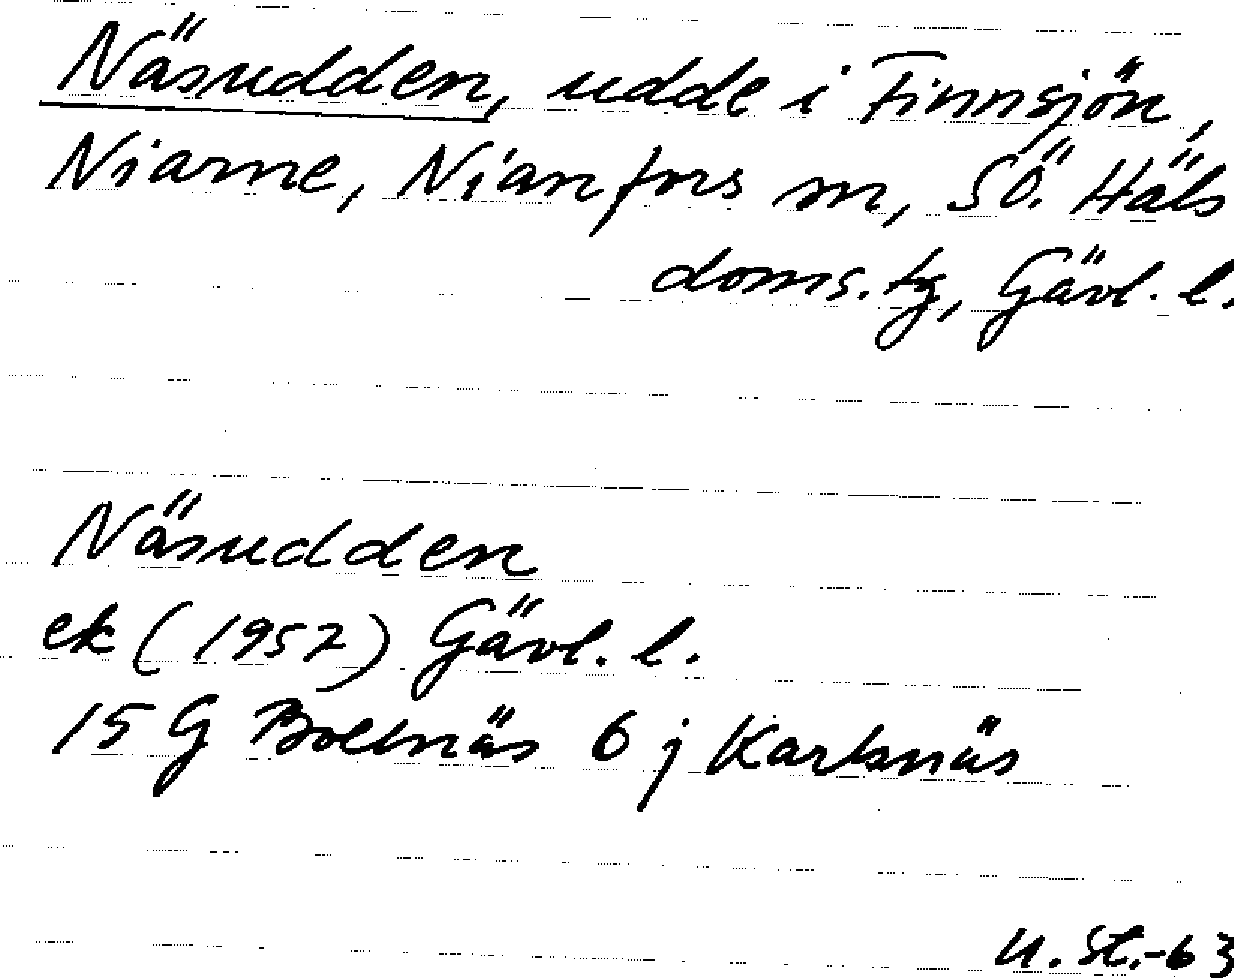 Näsudden, udde i Finnsjön,
Niarne, Nianfors sn, SÖ. Häls
doms.tg, Gävl. l.
Näsudden
ek (1952) Gävl. l.
15 G Bollnäs 6 j Karlsnäs
U. St.-63